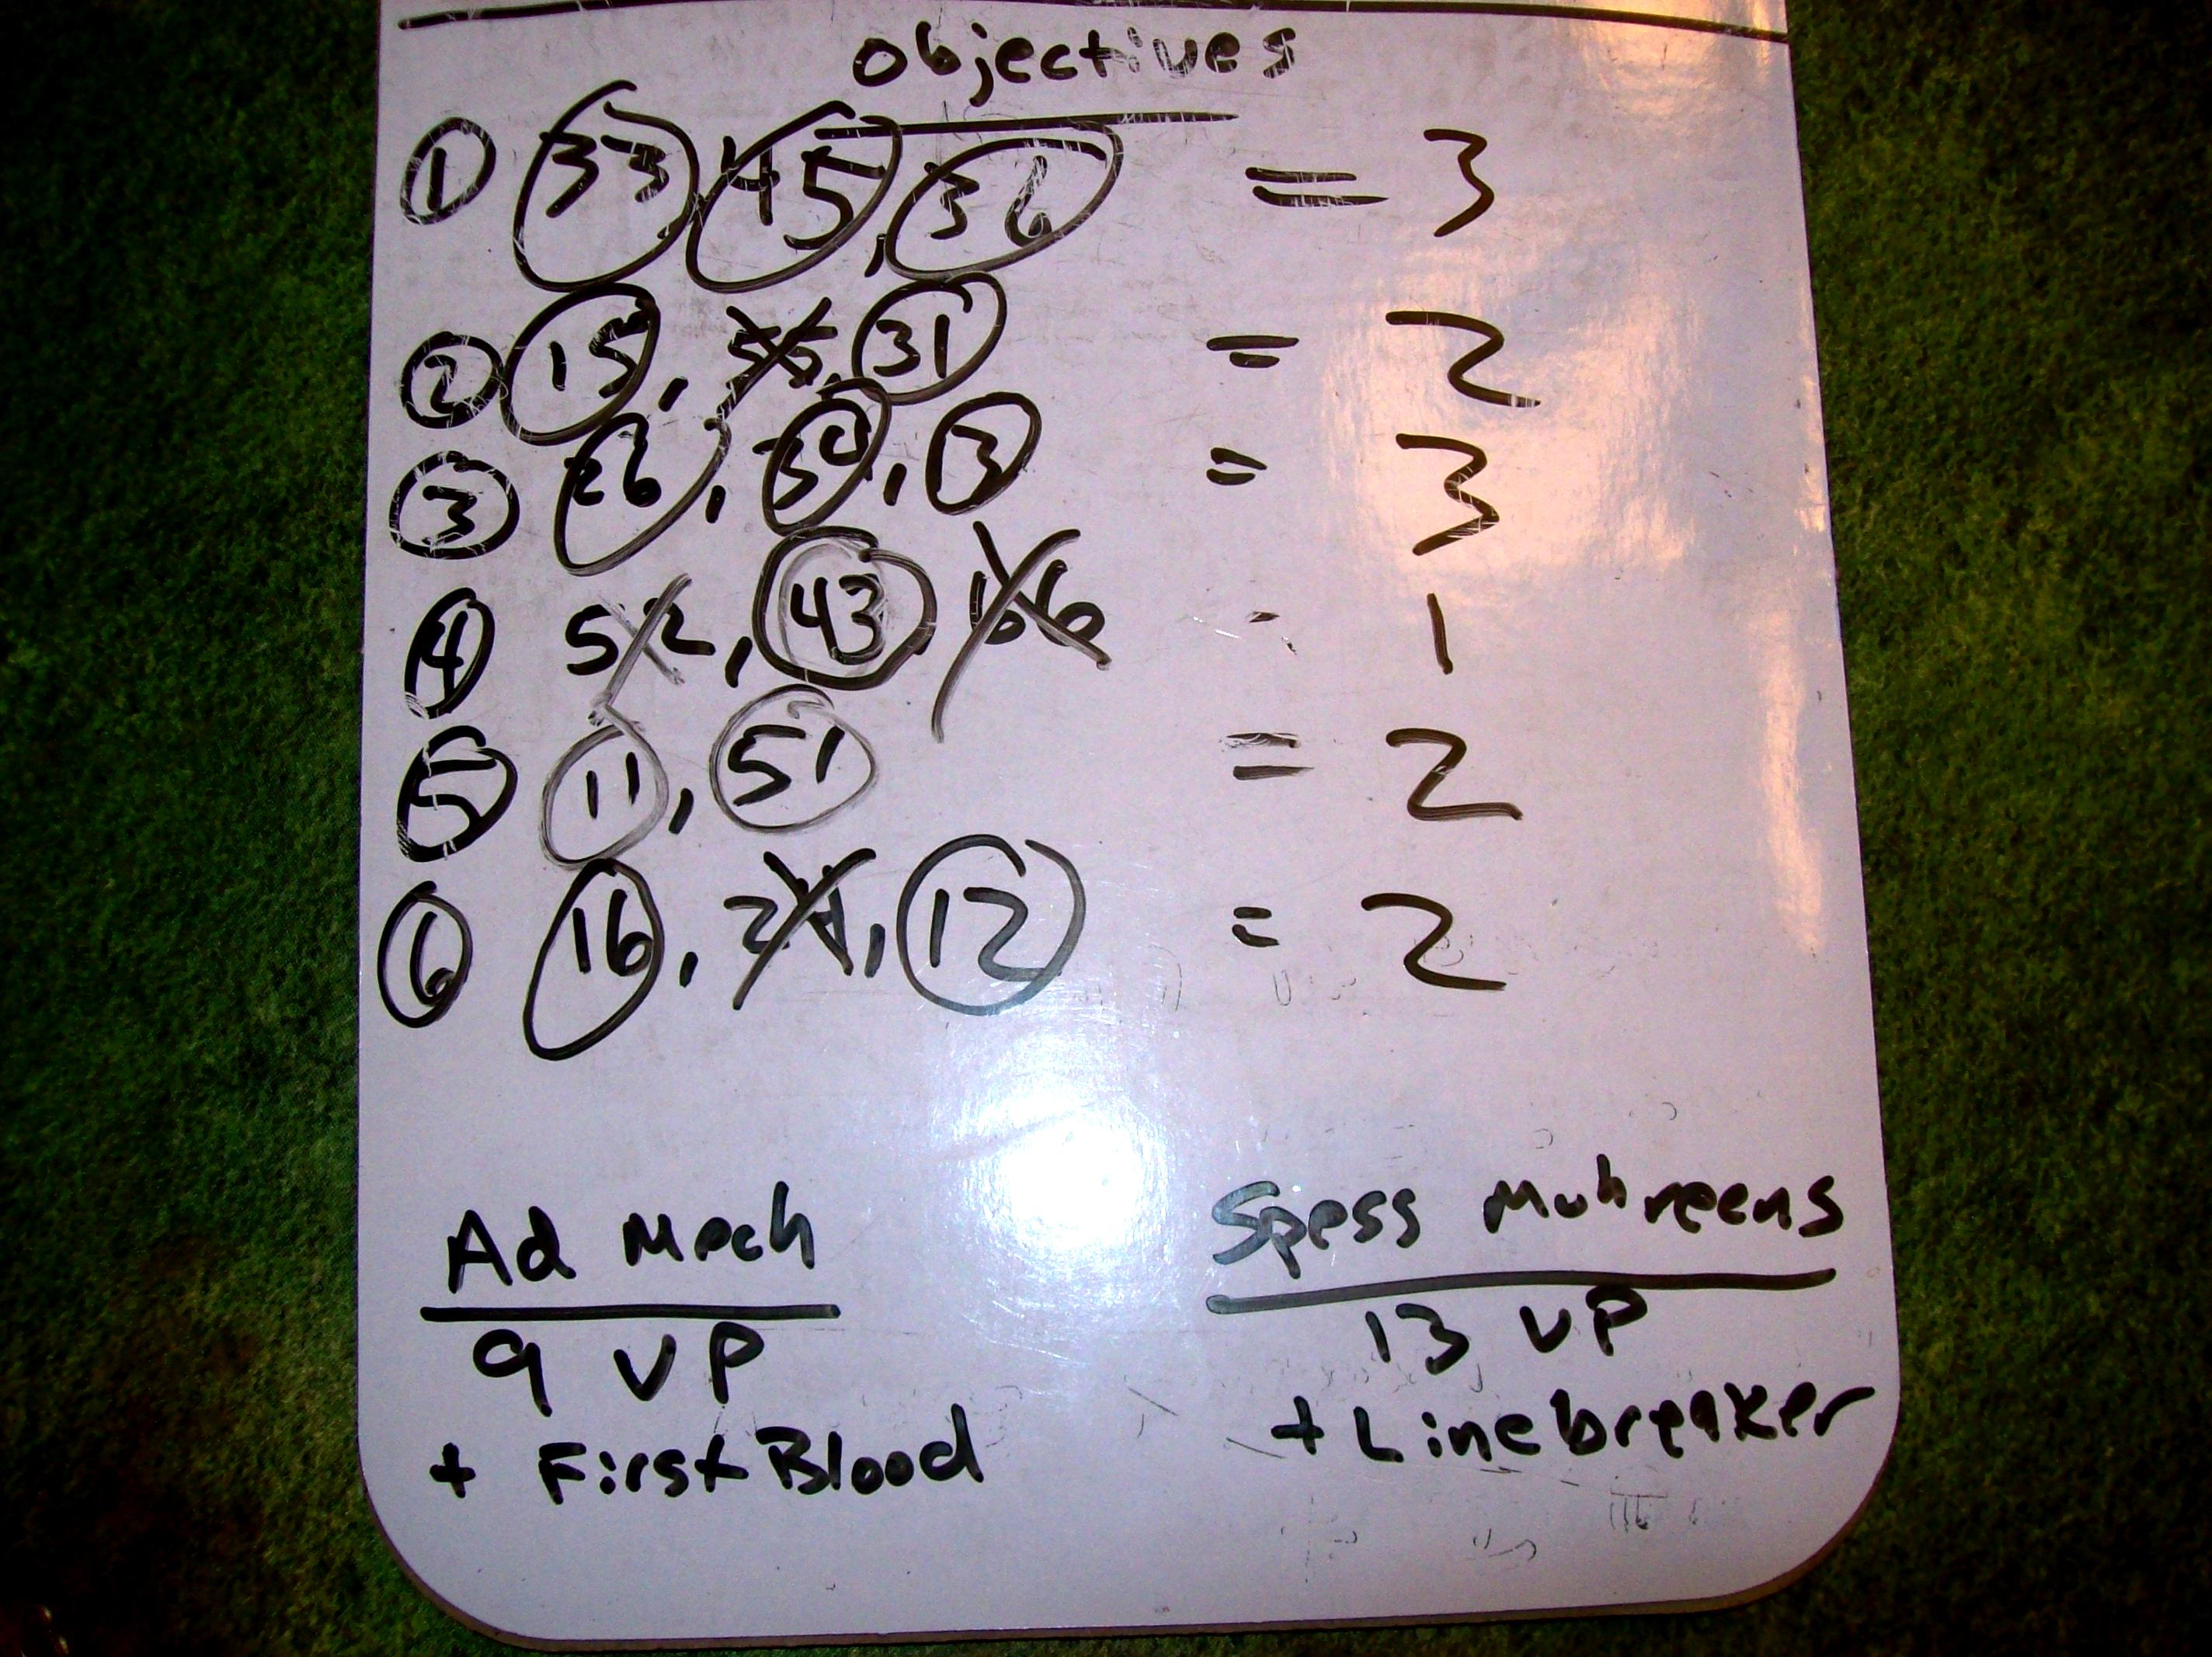 Objectives
1 33 45, 36 = 3
2 15, 56, 31 = 2
3 26, 50, 3 = 3
4 52, 43 66 - 1
5 11, 51 = 2
6 16, 24, 12 = 2
Ad Mech
9 VP
+ First Blood
Spess Muhreens
13 VP
+ Linebreaker